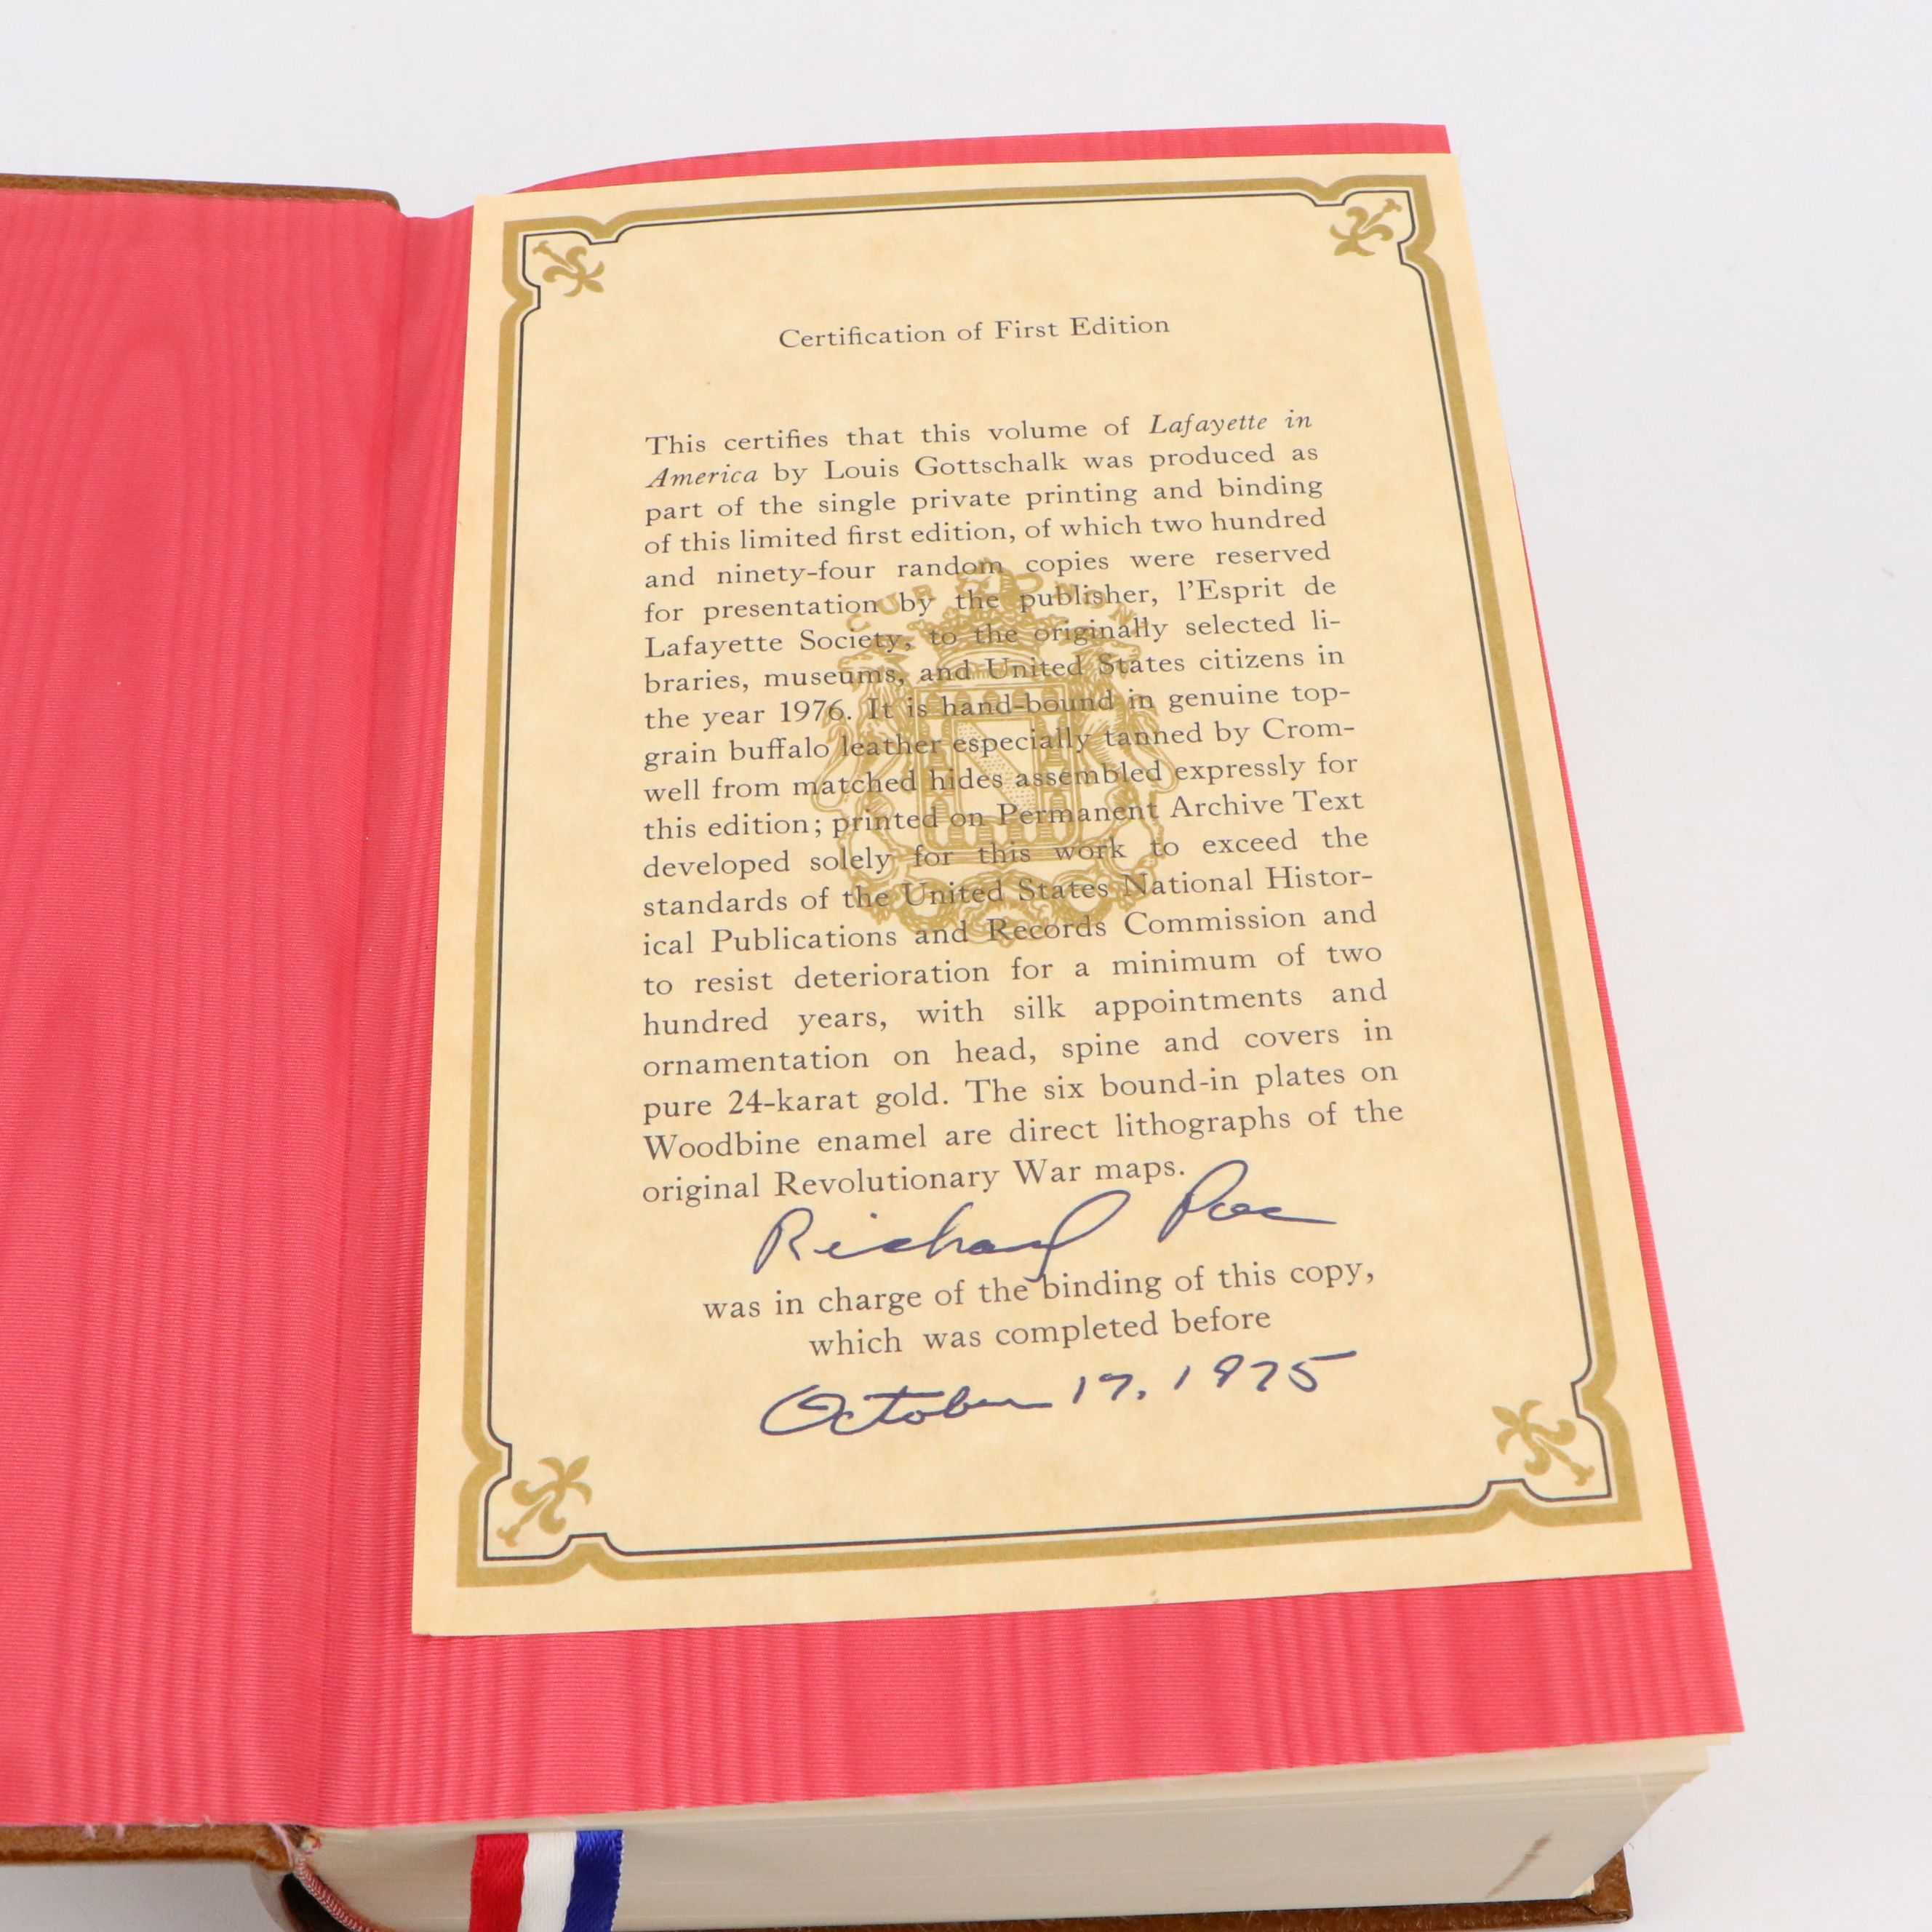 Certification of First Edition
This certifies that this volume of Lafayette in
America by Louis Gottschalk was produced as
part of the single private printing and binding
of this limited first edition, of which two hundred
and ninety-four random copies were reserved
for presentation by the publisher, l'Esprit de
Lafayette Society, to the originally selected li-
braries, museums, and United States citizens in
the year 1976. It is hand-bound in genuine top-
grain buffalo leather especially tanned by Crom-
well from matched hides assembled expressly for
this edition; printed on Permanent Archive Text
developed solely for this work to exceed the
standards of the United States National Histor-
ical Publications and Records Commission and
to resist deterioration for a minimum of two
hundred years, with silk appointments and
ornamentation on head, spine and covers in
pure 24-karat gold. The six bound-in plates on
Woodbine enamel are direct lithographs of the
original Revolutionary War maps.
Richard Poe
was in charge of the binding of this copy,
which was completed before
October 17, 1975